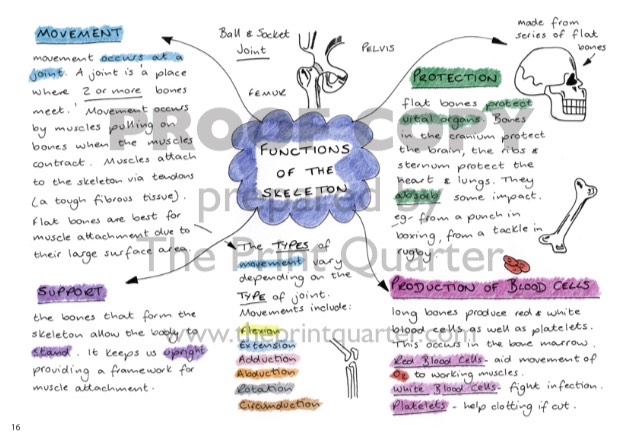 MOVEMENT
movement occurs at a
joint. A joint is a place
where 2 or more bones
meet. Movement occurs
by muscles pulling on
bones when the muscles
contract. Muscles attach
to the skeleton via tendons
(a tough fibrous tissue).
Flat bones are best for
muscle attachment due to
their large surface area.
Ball & Socket
Joint
PELVIS
FEMUR
made from
series of flat
bones
FUNCTIONS
OF THE
SKELETON
PROTECTION
flat bones protect
vital organs. Bones
in the cranium protect
the brain, the ribs &
sternum protect the
heart & lungs. They
absorb some impact.
eg- from a punch in
boxing, from a tackle in
rugby.
PROOF COPY
prepared by
The Print Quarter
www.theprintquarter.com
SUPPORT
the bones that form the
skeleton allow the body to
stand. It keeps us upright
providing a framework for
muscle attachment.
The TYPES of
movement vary
depending on the
TYPE of joint.
Movements include:
Flexion
Extension
Adduction
Abduction
Rotation
Circumduction
PRODUCTION OF BLOOD CELLS
long bones produce red & white
blood cells as well as platelets.
This occurs in the bone marrow.
Red Blood Cells - aid movement of
O₂ to working muscles.
White Blood Cells - fight infection.
Platelets - help clotting if cut.
16